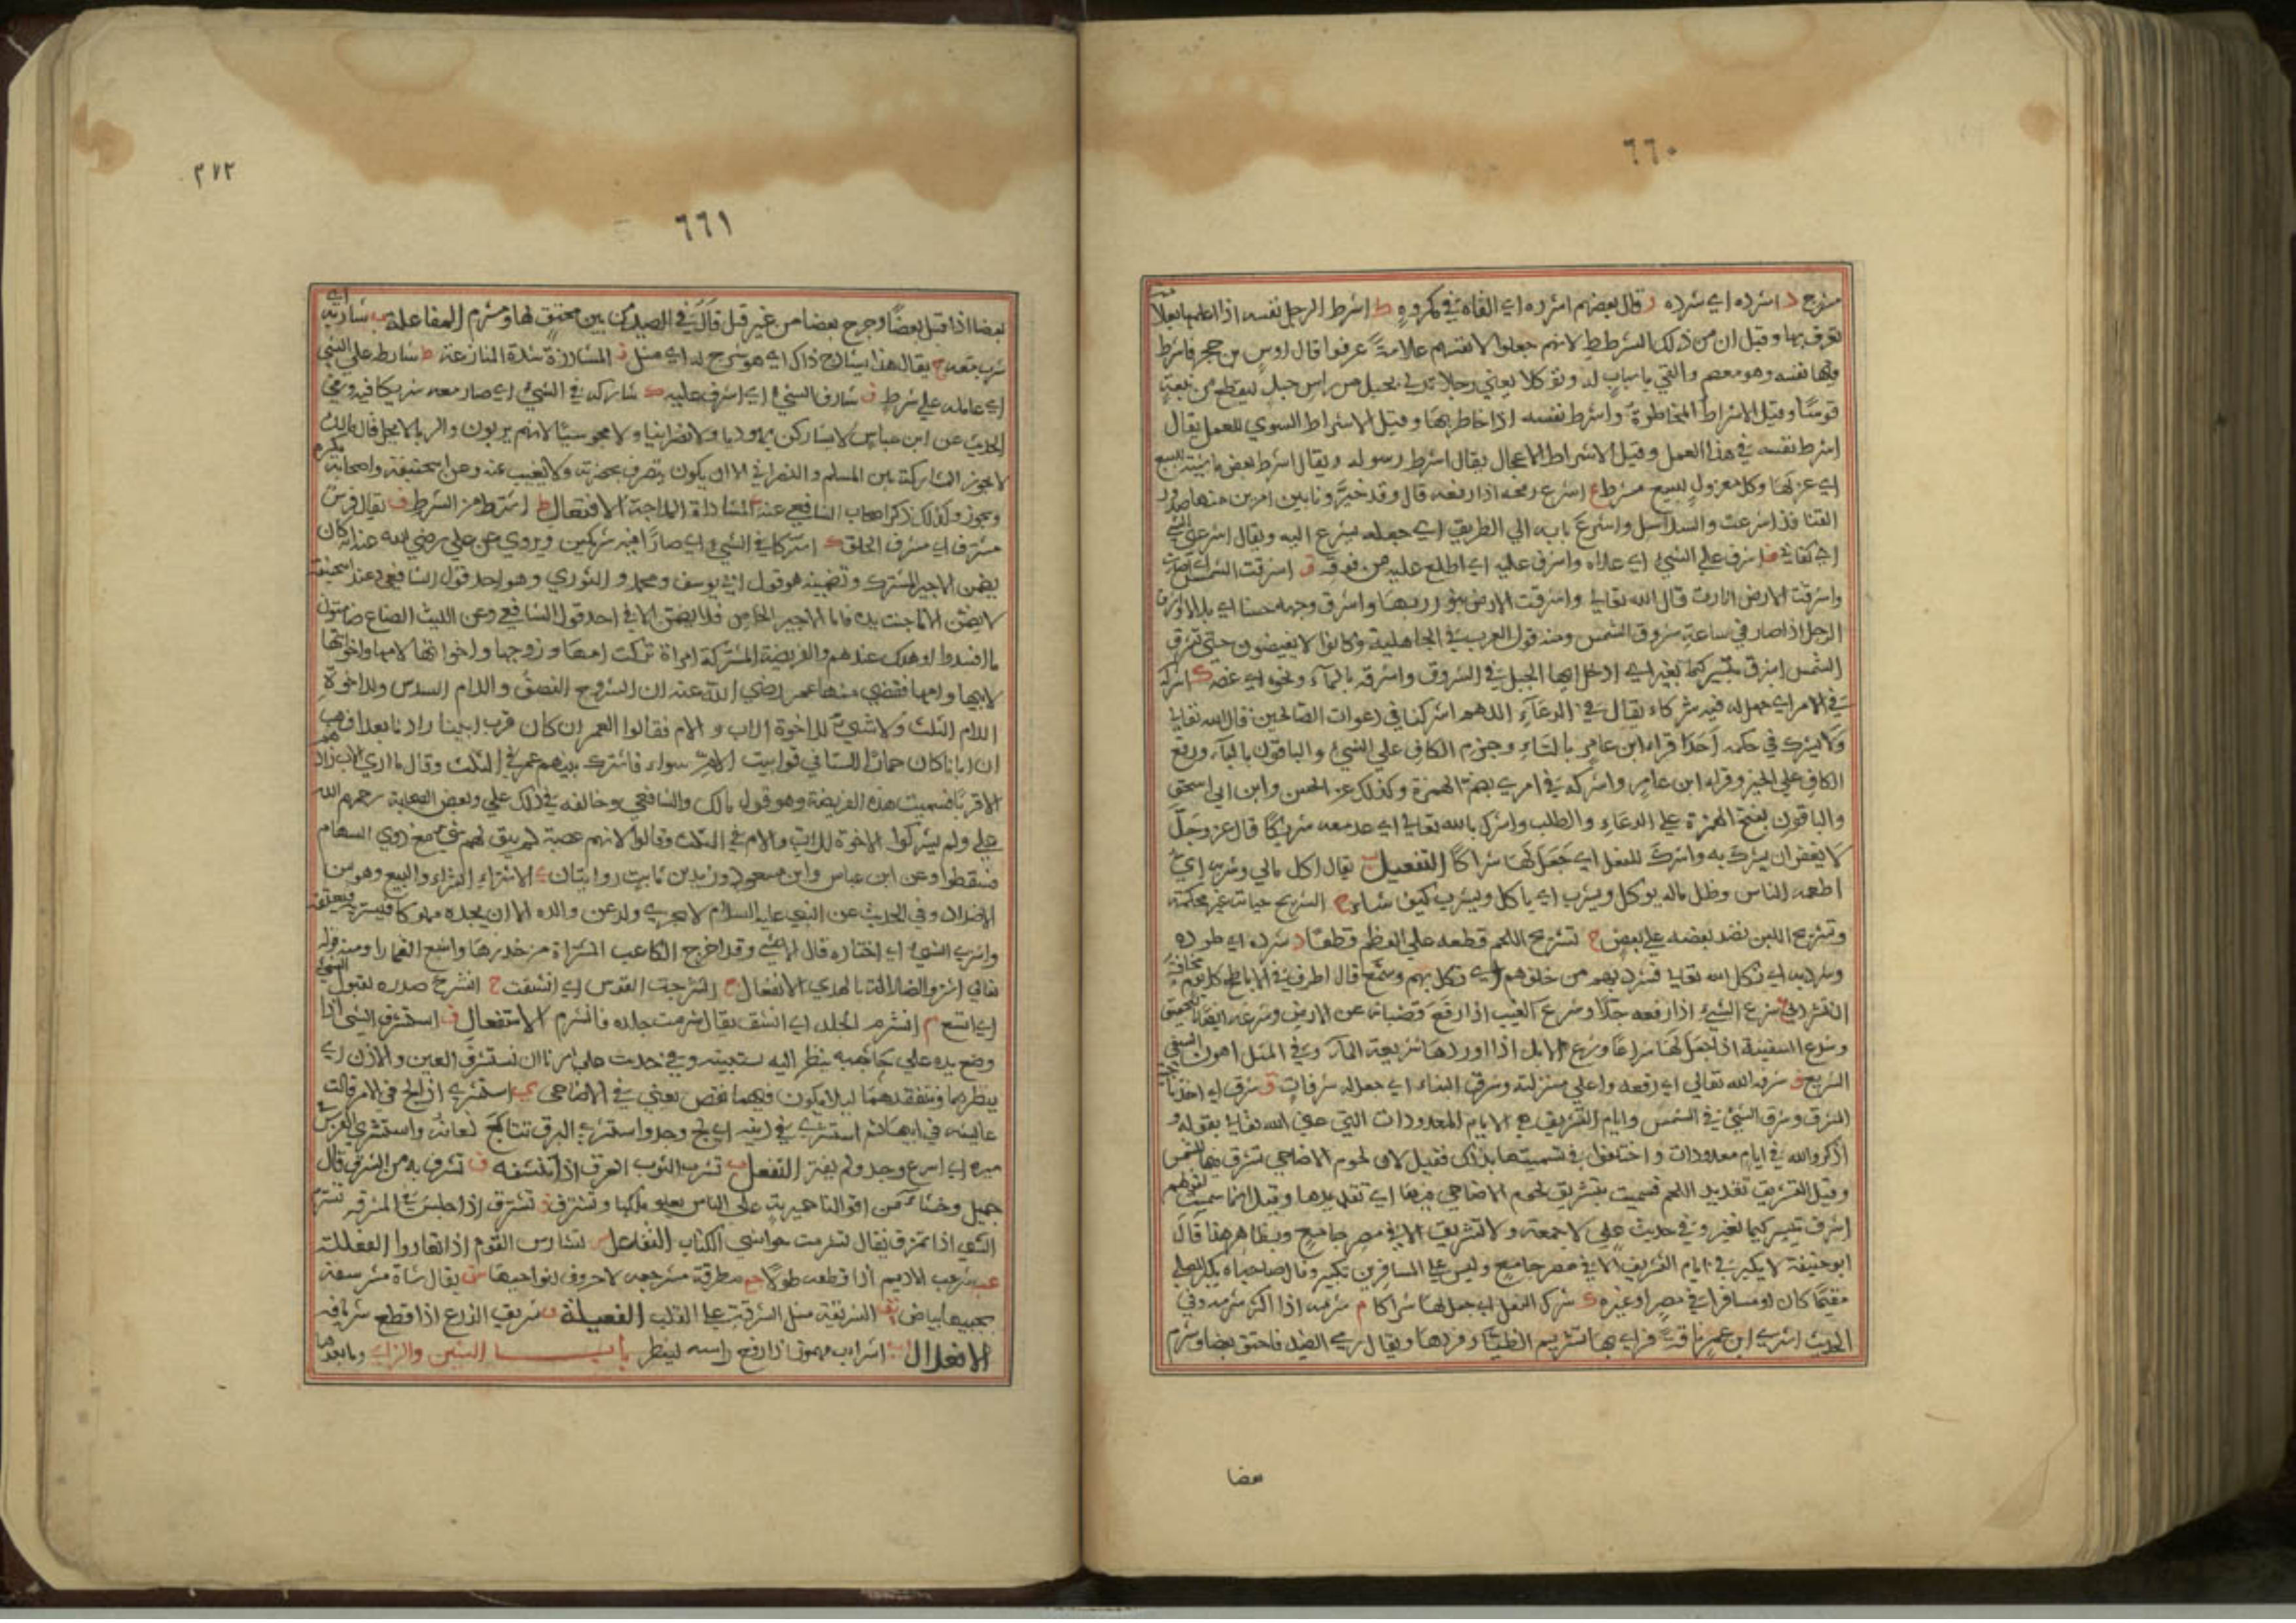 ٦٦٠
مشرج د اشرده اي شرده ر قال بعضهم اشرده اي القاه في مكروه ط اشرط الرجل نفسه اذا اعلمها بعلامة
تعرف بها وقيل ان من ذلك الشرطي لانهم جعلوا لانفسهم علامة عرفوا قال اوس بن حجر فاشرط
فيها نفسه وهو معصم والقي باسباب له وتوكلا يعني رجلا تدلى بحبل من راس جبل ليقطع من نبعة
قوسا وقيل الاشراط المخاطرة واشرط نفسه اذا خاطر بها وقيل الاشراط السوي للعمل يقال
اشرط نفسه في هذا العمل وقيل الاشراط الاعجال يقال اشرط رسوله ويقال اشرط بعض ماشيته للبيع
اي عزلها وكل معزول لبيع مشرط ع اشرع رمحه اذا رفعه قال وقد خيرونا بين امرين منهما صدور
القنا قد اشرعت والسلاسل واشرع بابه الي الطريق اي جعله يشرع اليه ويقال اشرعني الشي
اي كفاني ف اشرف علي الشيء اي علاه واشرف عليه اي اطلع عليه من فوقه ق اشرقت الشمس اي اضاءت
واشرقت الارض انارت قال الله تعالى واشرقت الارض بنور ربها واشرق وجهه حسنا اي تلالا واشرق
الرجل اذا صار في ساعة شروق الشمس ومنه قول العرب في الجاهلية وكانوا لا يفيضون حتى تشرق
الشمس اشرق ثبير كيما نغير اي ادخل ايها الجبل في الشروق واشرقه بالماء ونحوه اي غصه ك اشركه
في الامر اي جعل له فيه شركاء يقال في الدعاء اللهم اشركنا في دعوات الصالحين قال الله تعالى
ولا يشرك في حكمه احدا قراء ابن عامر بالتاء وجزم الكاف علي النهي والباقون بالياء ورفع
الكاف علي الخبر وقراء ابن عامر واشركه في امري بضم الهمزة وكذلك عن الحسن وابن ابي اسحق
والباقون بفتح الهمزة علي الدعاء والطلب واشرك بالله تعالى اي عد معه شريكا قال عز وجل
لا يغفر ان يشرك به واشرك للنعل اي جعل لها شراكا التفعيل ب يقال اكل مالي وشربه اي
اطعمه الناس وظل ماله يوكل ويشرب اي ياكل ويشرب كيف شاء ج التشريج خياطة غير محكمة
وتشريج اللبن نضد بعضه علي بعض ح تشريح اللحم قطعه علي العظم قطعا د شرده اي طرده
وشرد به اي نكل الله تعالى فشرد بهم من خلفهم اي نكل بهم وسمع قال اطوف في الاباطح كل يوم مخافة
ان يشرد بي ع شرع الشيء اذا رفعه جدا
وشرع السفينة اذا جعل لها شراعا وشرع الابل اذا اوردها شريعة الماء وفي المثل اهون السقي
التشريع ف شرفه الله تعالى اي رفعه واعلى منزلته وشرف البناء اي جعل له شرفات ق شرق اي اخذ ناحية
المشرق وشرق الشيء في الشمس وايام التشريق هي الايام المعدودات التي عنى الله تعالى بقوله و
اذكروا الله في ايام معدودات واختلفوا في تسميتها بذلك فقيل لان لحوم الاضاحي تشرق فيها للشمس
وقيل التشريق تقديد اللحم فسميت بتشريق لحوم الاضاحي فيها اي تقديدها وقيل انما سميت لقولهم
اشرق ثبير كيما نغير وفي حديث علي لا جمعة ولا تشريق الا في مصر جامع وبظاهر هذا قال
ابو حنيفة لا يكبر في ايام التشريق الا في مصر جامع وليس على المسافرين تكبير وقال صاحباه يكبر المصلي
مقيما كان او مسافرا في مصر او غيره ك شرك النعل اي جعل لها شراكا م شرمه اذا اكثر شرمه وفي
الحديث اشترى ابن عمر ناقة فراى بها تشريم الظئار فردها ويقال رمى الصيد فاحتق بعضا وشرم
بعضا
٣٧٢
٦٦١
بعضا اذا قتل بعضا وجرح بعضا من غير قتل قال في الصيد من بين محتق لها ومشرم المفاعلة ب شاربه اي
شرب معه ج يقال هذا يشارج ذاك اي هو شرج له اي مثل ز المشارزة شدة المنازعة ط شارط علي الشي
اي عامله علي شرط ف شارف الشيء اي اشرف عليه ك شاركه في الشيء اي صار معه شريكا فيه وفي
الحديث عن ابن عباس لا يشاركن يهوديا ولا نصرانيا ولا مجوسيا لانهم يربون والربا لا يحل قال مالك
لا يجوز الشركة بين المسلم والنصراني الا ان يكون يتصرف بحضرته ولا يغيب عنه وعن ابي حنيفة واصحابه يكره
ويجوز وكذلك ذكر اصحاب الشافعي عنه ي المشاراة الملاجة الافتعال ط اشترط من الشرط ف يقال فرس
مشترف اي مشرف الخلق ك اشتركا في الشيء اي صارا فيه شريكين وروي عن علي رضي الله عنه انه كان
يضمن الاجير المشترك وتضمينه هو قول ابي يوسف ومحمد والثوري وهو احد قولي الشافعي وعند ابي حنيفة
لا يضمن الا ما جنت يده فاما الاجير الخاص فلا يضمن الا في احد قولي الشافعي وعن الليث الصناع ضامنون
ما افسدوا او هلك عندهم والفريضة المشتركة امراة تركت امها وزوجها واخوانها لامها واخواتها
لابيها وامها فقضي فيها عمر رضي الله عنه ان للزوج النصف وللام السدس وللاخوة
للام الثلث ولا شيء للاخوة للاب والام فقالوا لعمر ان كان قرب ابينا زادنا بعدا فهب
ان ابانا كان حمارا السنا في قرابة الام سواء فاشترك بينهم عمر في الثلث وقال ما ارى الاب زادهم
الا قربا فسميت هذه الفريضة وهو قول مالك والشافعي وخالفه في ذلك علي وبعض الصحابة رحمهم الله
علي ولم يشركوا الاخوة للاب والام في الثلث وقالوا لانهم عصبة لم يبق لهم شي مع ذوي السهام
فسقطوا وعن ابن عباس وابن مسعود وزيد بن ثابت روايتان ي الاشتراء الشراء والبيع وهو من
الاضداد وفي الحديث عن النبي عليه السلام لا يجزي ولد عن والده الا ان يجده مملوكا فيشتريه فيعتقه
واشترى الشيء اي اختاره قال الاعشى وقد اخرج الكاعب المشتراة من خدرها واشيع القمارا ومنه قوله
تعالى اشتروا الضلالة بالهدى الانفعال ج انشرجت القوس اي انشقت ح انشرح صدره لقبول الشيء
اي اتسع م انشرم الجلد اي انشق يقال شرمت جلده فانشرم الاستفعال ف استشرف الشي اذا
وضع يده علي حاجبه ينظر اليه يستبينه وفي حديث علي امرنا ان نستشرف العين والاذن اي
ينظرهما ويتفقدهما ليلا يكون فيهما نقص يعني في الاضاحي ي استشرى اذا لج في الامر قالت
عائشة في ابيها ثم استشرى في دينه اي لج وجد واستشرى البرق تتابع لمعانه واستشرى الفرس في
سيره اي اسرع وجد ولم يفتر التفعل ب تشرب الثوب العرق اذا تنشفه ف تشرف به من الشرف قال
ق تشرق اذا جلس في المشرقة م تشرم
الشي اذا تمزق يقال تشرمت حواشي الكتاب التفاعل س تشارس القوم اذا تعادوا الفعللة
عب شرعب الاديم اذا قطعه طولا جع مطرقة مشرجعة لا حروف لنواحيها يقال شاة
بجنبيها بياض الفعيلة ف شريف الزرع اذا قطع شريافه
الافعلال اشراب مهموز اذا رفع راسه لينظر باب الشين والزاي وما بعدها